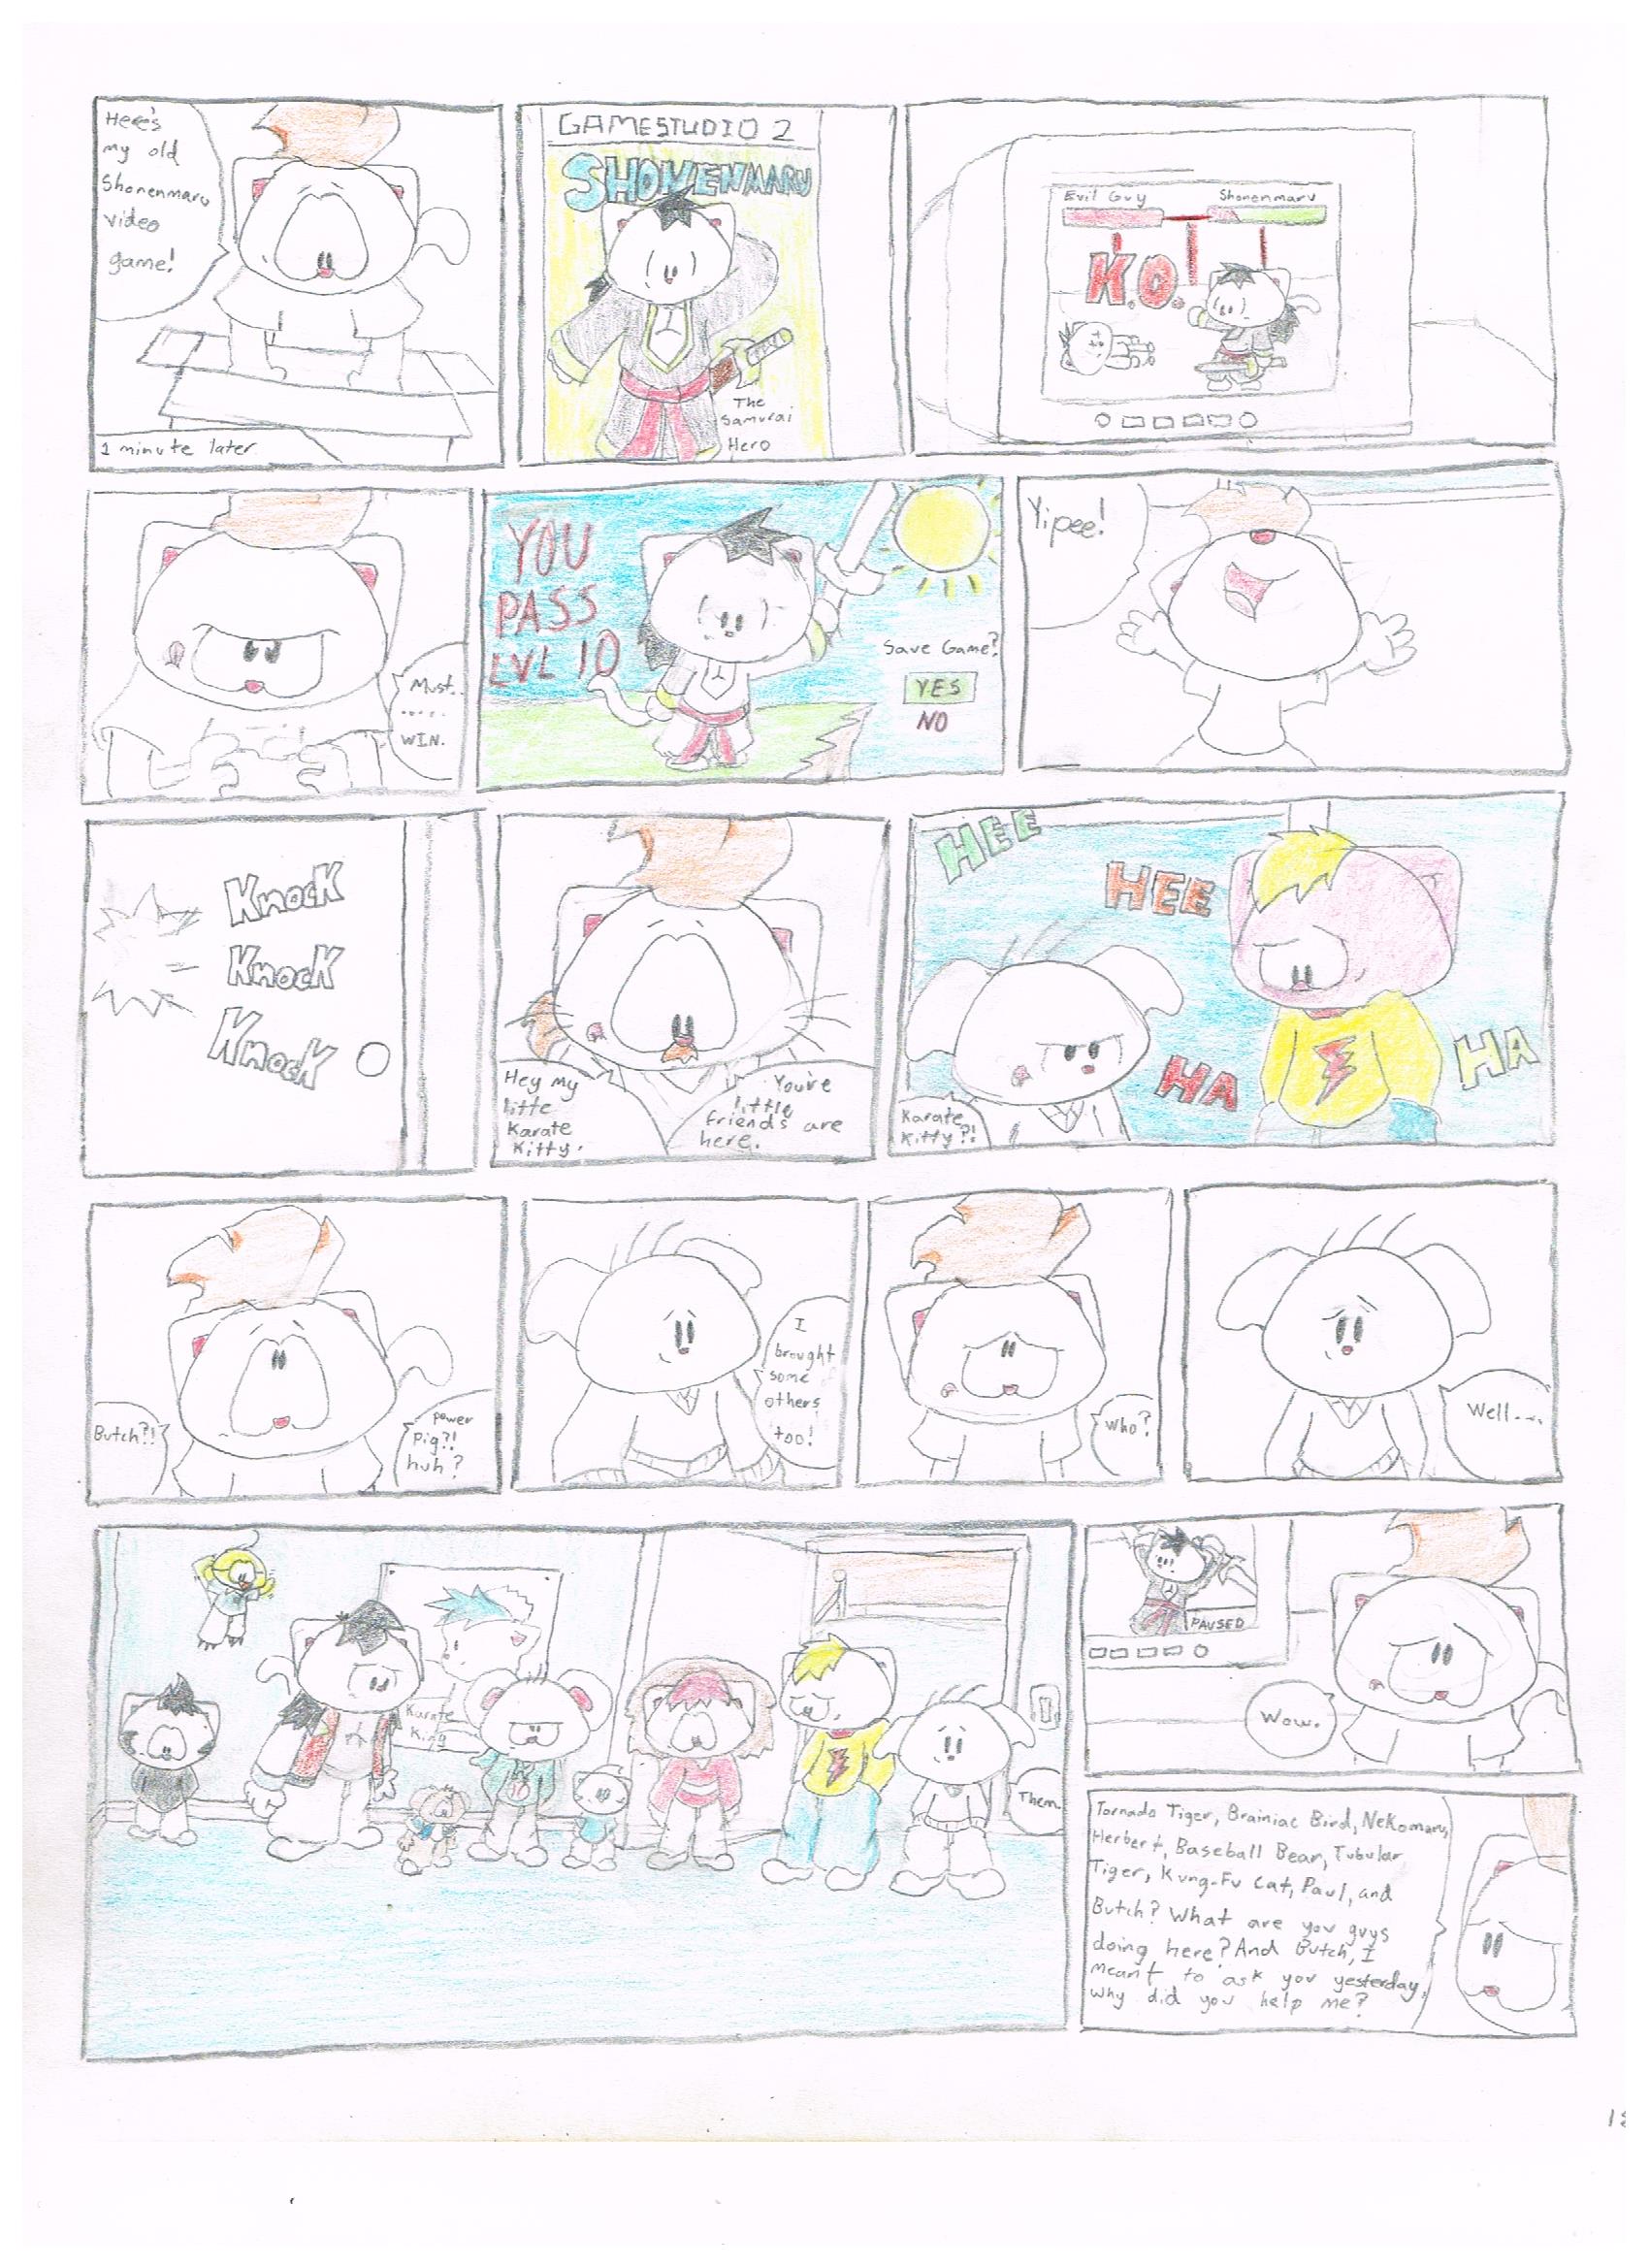 Here's
my old
Shonenmaru
video
game!
1 minute later
GAMESTUDIO 2
SHONENMARU
The
Samurai
Hero
Evil Guy
Shonenmaru
K.O.
Must..
.....
WIN.
YOU
PASS
LVL 10
Save Game?
YES
NO
Yipee!
Knock
Knock
Knock
Hey my
litte
Karate
Kitty.
You're
little
friends are
here.
HEE
HEE
HA
HA
Karate
Kitty?!
Butch?!
power
pig?!
huh?
I
brought
some
others
too!
Who?
Well....
Karate
King
Them.
PAUSED
Wow.
Tornado Tiger, Brainiac Bird, Nekomaru,
Herbert, Baseball Bear, Tubular
Tiger, Kung-Fu Cat, Paul, and
Butch? What are you guys
doing here? And Butch, I
meant to ask you yesterday,
why did you help me?